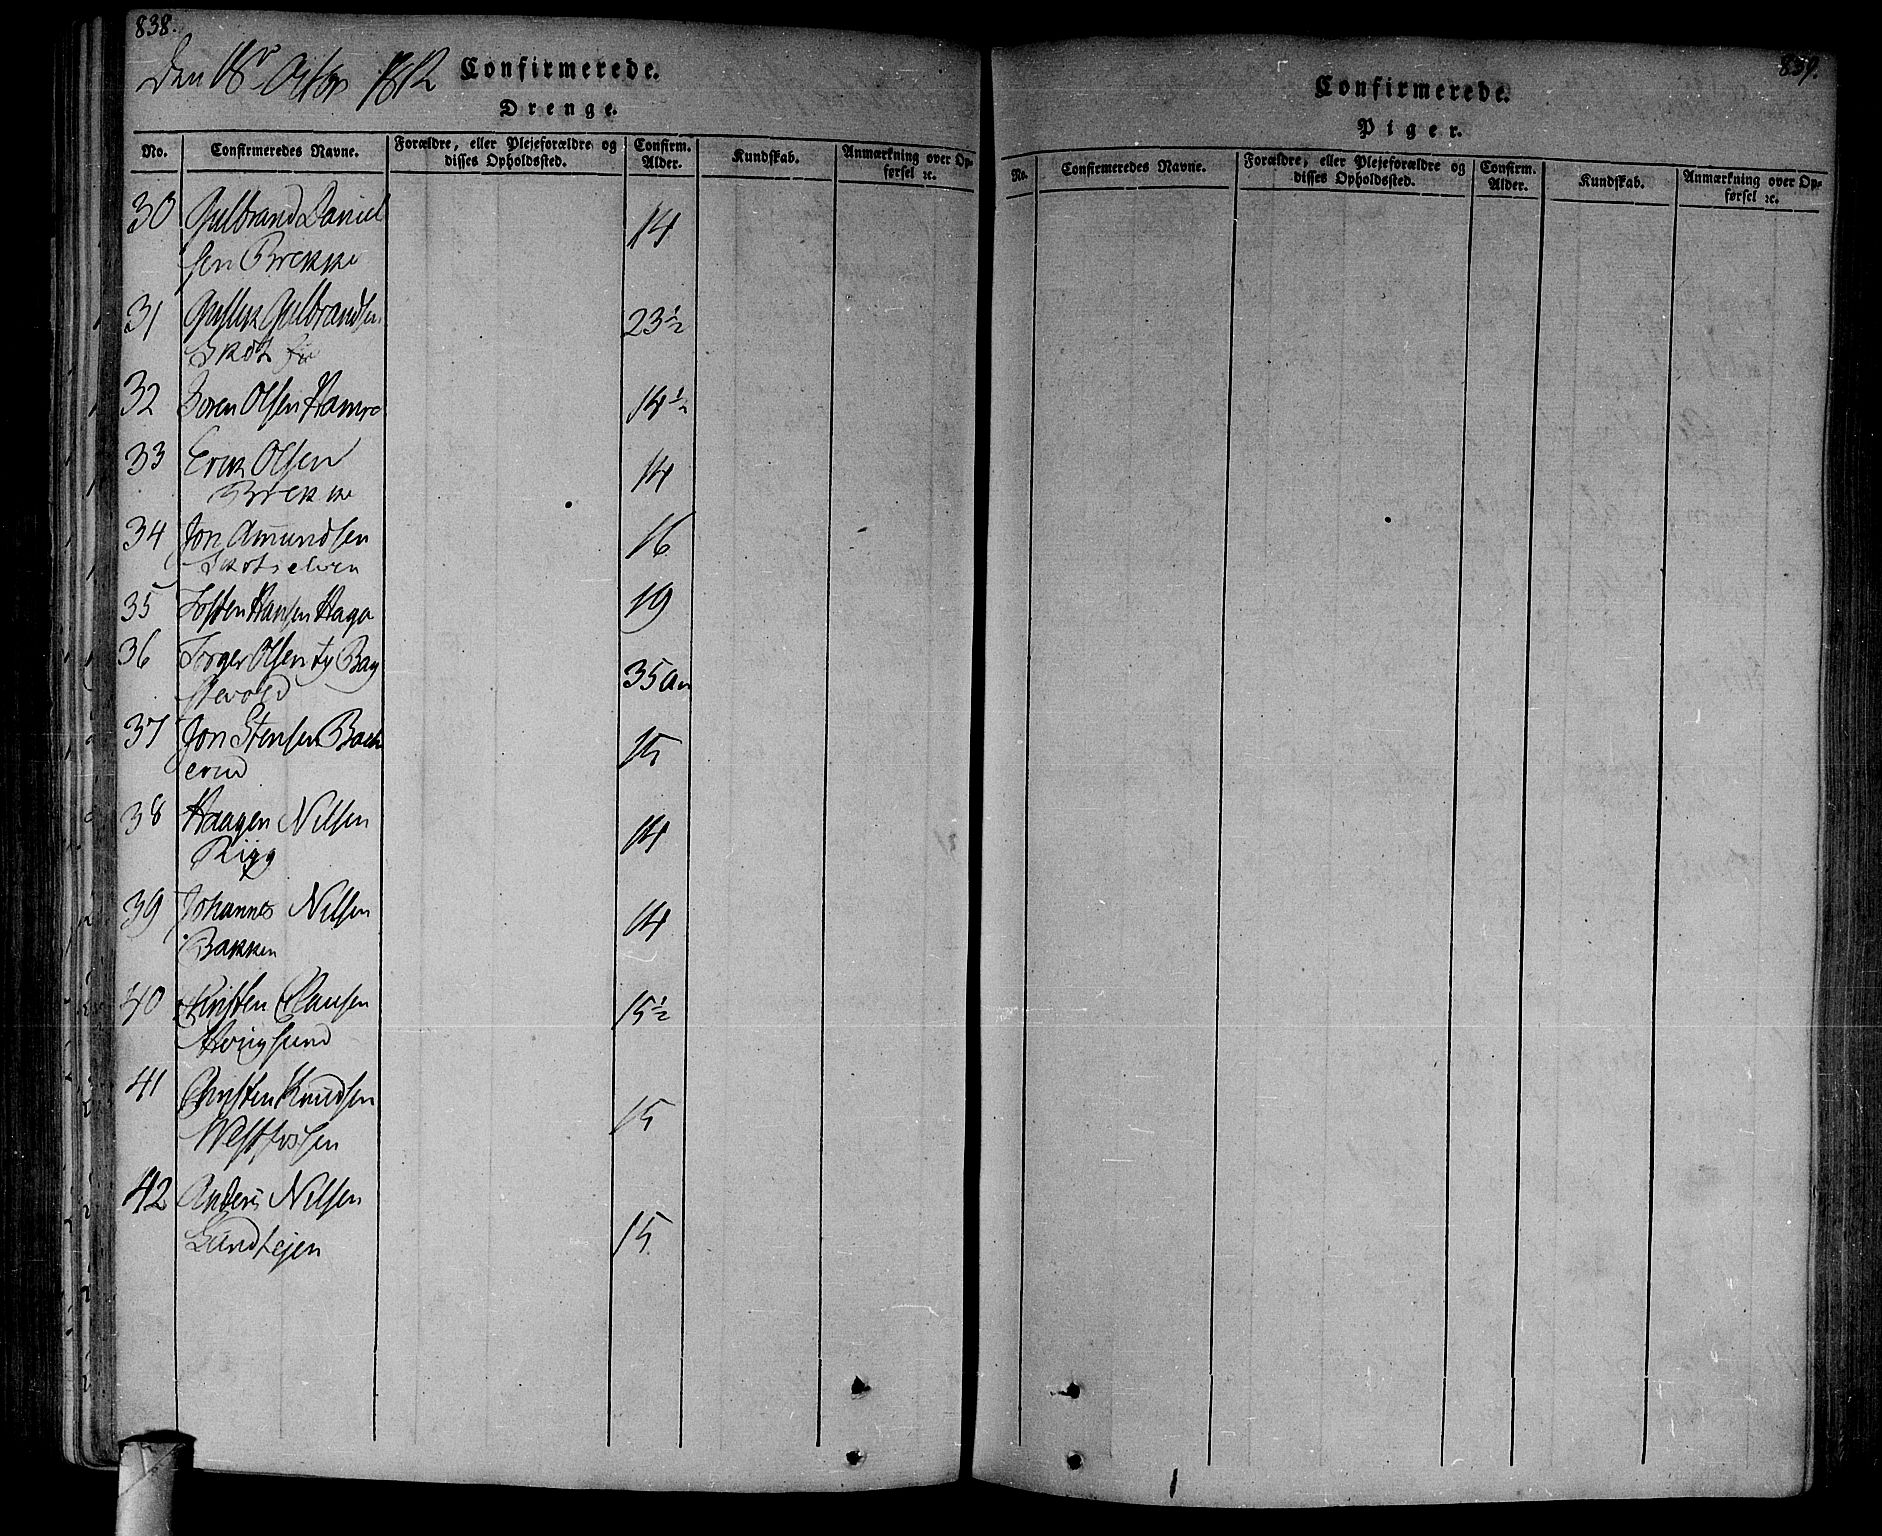 838.
Den 18de Octbr 1812
Confirmerede.
Drenge.
No. Confirmeredes Navne. Forældre, eller Plejeforældre og disses Opholdssted. Confirm. Alder. Kundskab. Anmærkning over Opførsel ꝛc.
30 Gulbrand Daniel 14
sen Brekke
31 Gulbrandsen 23½
32 Soren Olsen Hamre 14½
33 Erik Olsen 14
Brekke
34 Jon Amundsen 16
Skotselven
35 Hansen Haga 19
36 Torger Olsen 35
37 Jon Stensen Bach 15
erud
38 Haagen Nilsen 14
Rigg
39 Johannes Nilsen 14
Bakken
40 Christen Clausen 15½
41 Christen Knudsen 15
Westfossen
42 Anders Nilsen 15
839.
Confirmerede.
Piger.
No. Confirmeredes Navne. Forældre, eller Plejeforældre og disses Opholdssted. Confirm. Alder. Kundskab. Anmærkning over Opførsel ꝛc.